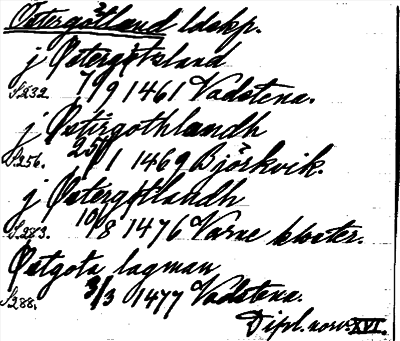 Östergötland ldskp.
j Østergötsland
S.232. 7/9 1461 Vadstena.
j Østirgothlandh
S.256. 25/1 1469 Björkvik.
j Østergötlandh
S.283. 10/8 1476 Varne kloster.
Østgota lagman
S.288. 3/3 1477 Vadstena.
Dipl. norv. XVI.